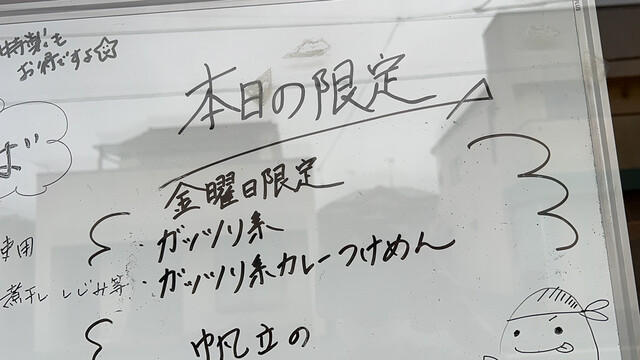 特製も
お得ですよ☆
本日の限定
ば
金曜日限定
・ガッツリ系
専用
・ガッツリ系カレーつけめん
煮干し しじみ等
帆立の